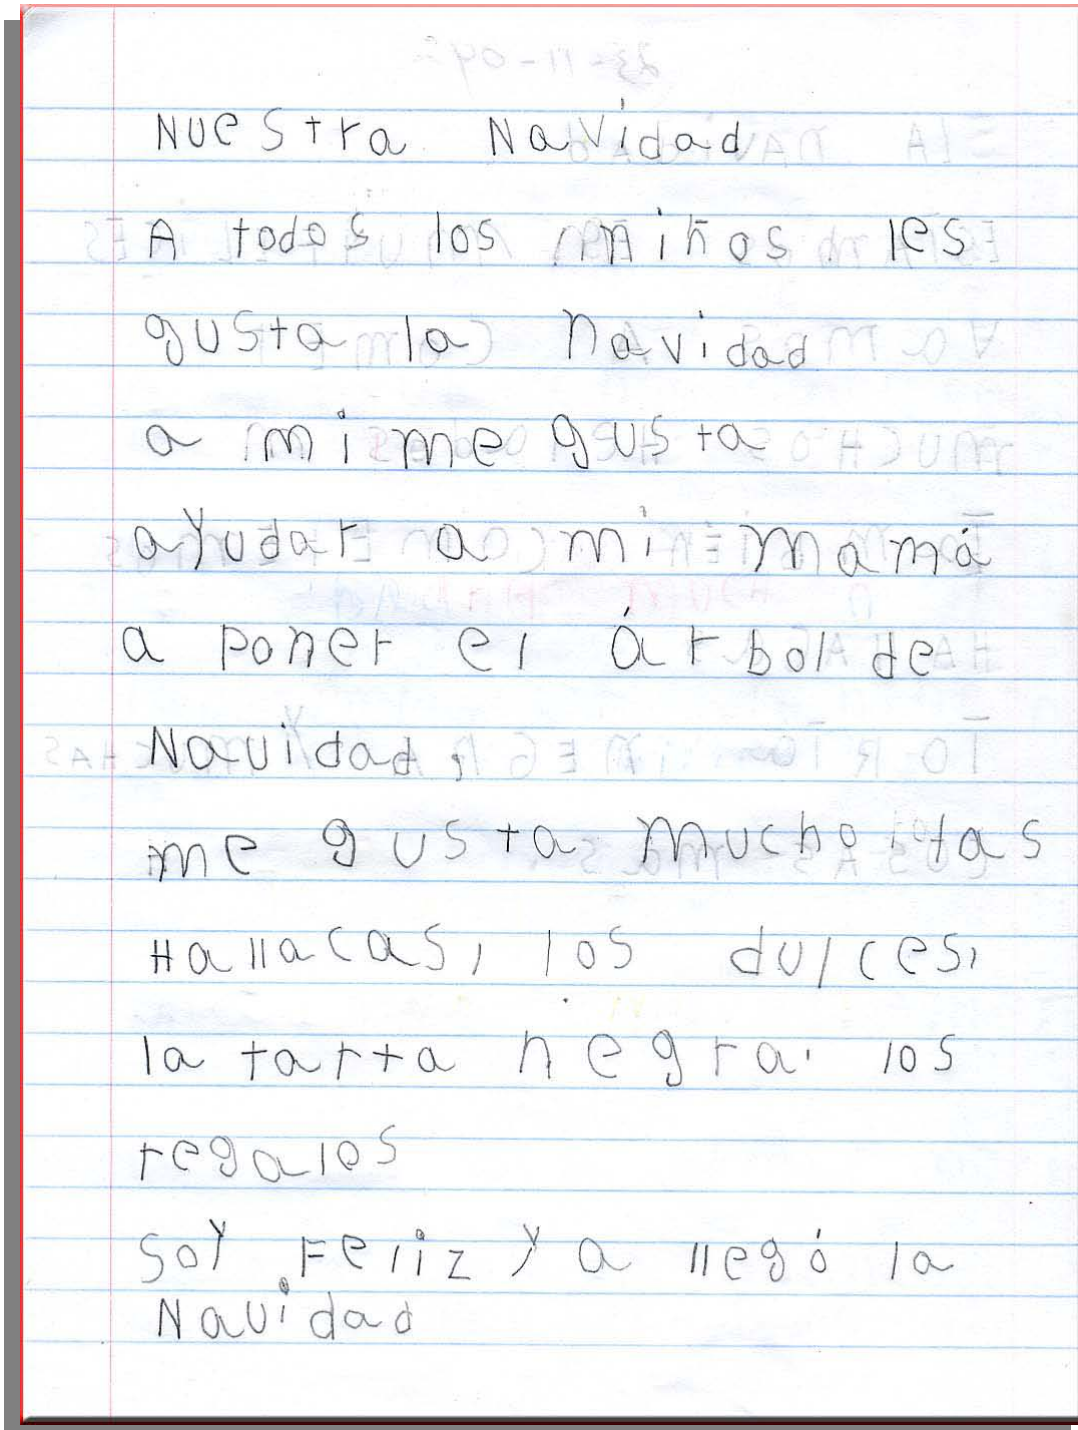 Nuestra Navidad
A todos los niños les
gusta la navidad
a mi me gusta
ayudar a mi mamá
a poner el árbol de
Navidad,
me gusta mucho las
Hallacas, los dulces,
la tarta negra. los
regalos
Soy Feliz ya llegó la
Navidad